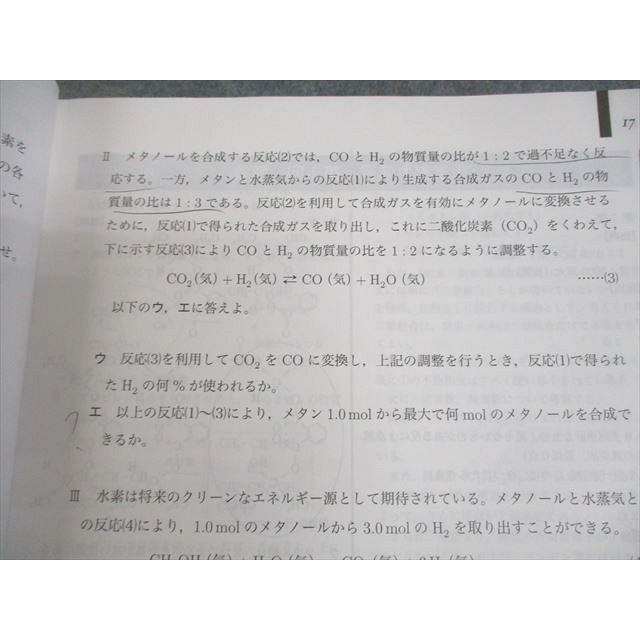 17
素を
の各
いて,
せ。
Ⅱ メタノールを合成する反応(2)では,COとH₂の物質量の比が1:2で過不足なく反
応する。一方,メタンと水蒸気からの反応(1)により生成する合成ガスのCOとH₂の物
質量の比は1:3である。反応(2)を利用して合成ガスを有効にメタノールに変換させる
ために,反応(1)で得られた合成ガスを取り出し,これに二酸化炭素(CO₂)をくわえて,
下に示す反応(3)によりCOとH₂の物質量の比を1:2になるように調整する。
CO₂(気)+H₂(気)⇄CO(気)+H₂O(気) ……(3)
以下のウ,エに答えよ。
ウ 反応(3)を利用してCO₂をCOに変換し,上記の調整を行うとき,反応(1)で得られ
たH₂の何%が使われるか。
? エ 以上の反応(1)~(3)により,メタン1.0molから最大で何molのメタノールを合成で
きるか。
Ⅲ 水素は将来のクリーンなエネルギー源として期待されている。メタノールと水蒸気と
の反応(4)により,1.0molのメタノールから3.0molのH₂を取り出すことができる。